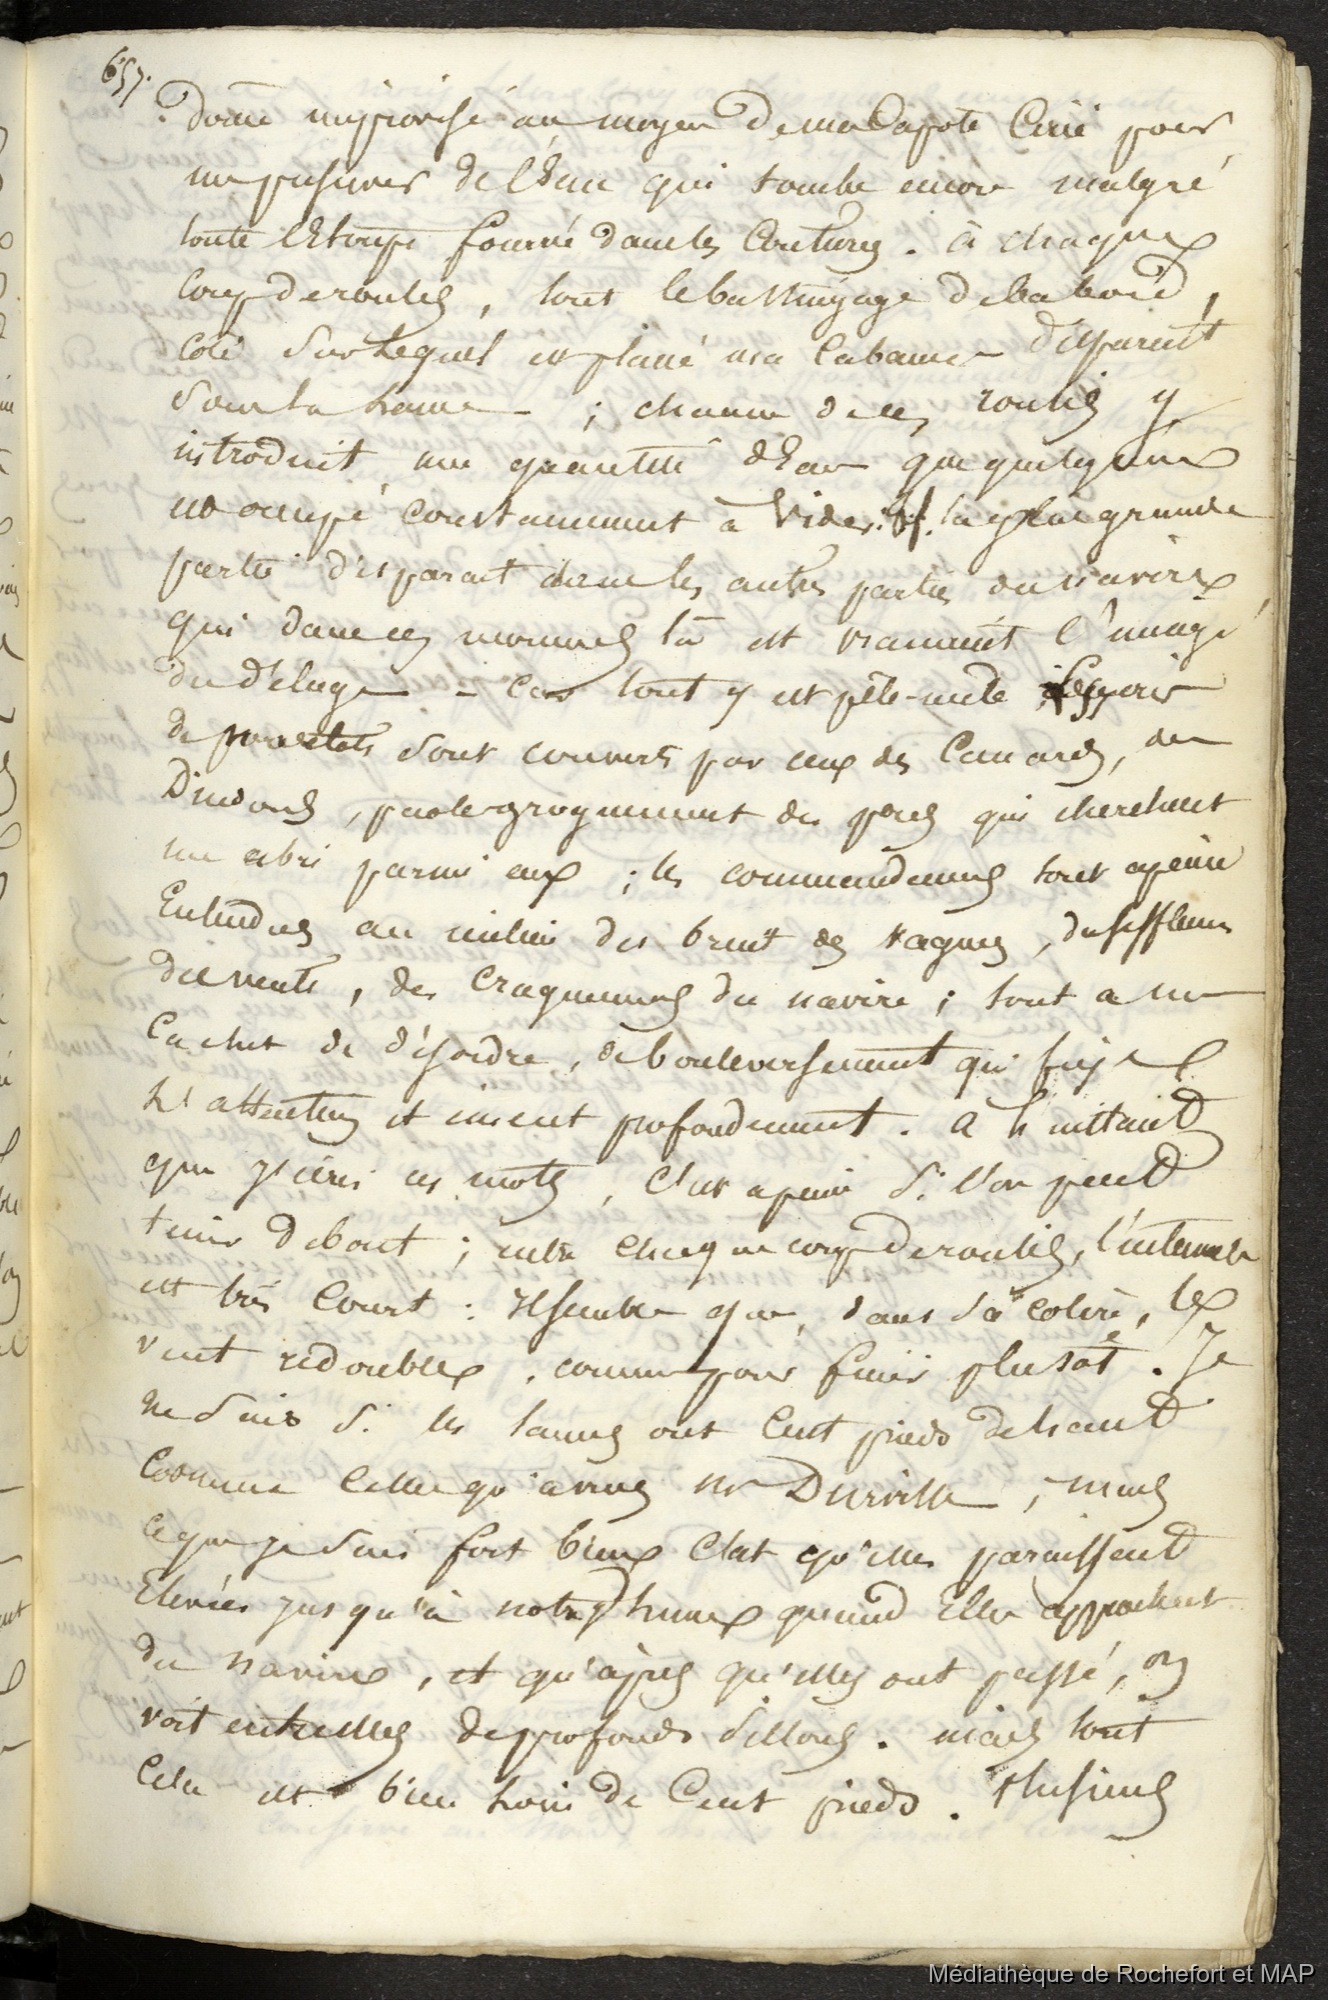 657.
Dome improvisé au moyen de ma Capote Cirée pour
me préserver de l'Eau qui tombe encore malgré
toute l'Etoupe fourrée dans les Coutures. à chaque
Coup de roulis, tout le bastingage de babord,
coté sur lequel est placé ma Cabane disparait
sous la lame - ; chacun de ces roulis y
introduit une quantité d'Eau que quelqu'un
est occupé constamment à vider. la plus grande
partie disparait dans les autres parties du navire
qui dans ces momens là est vraiment l'image
du déluge - Car tout y est pêle-mêle, les cris
de poulets sont couverts par ceux des Canards, des
Dindons, par le grognement des porcs qui cherchent
un abri parmi eux ; les commandemens sont apeine
Entendus au milieu des bruit des vagues, du sifflement
des vents, des Craquemens du navire ; tout a un
Cachet de désordre, de bouleversement qui fixe
l'attention et émeut profondement. à l'instant
que j'écris ces mots, c'est apeine si l'on peut
tenir debout ; entre chaque coup de roulis, l'intervalle
est très Court : il semble que, dans sa colère, le
vent redouble, comme pour finir plus tôt. Je
ne sais si les lames ont Cent pieds de haut
Comme Celle qu'a vues Mr Durville, mais
ce que je sais fort bien C'est qu'elles paraissent
Elevées jusqu'à notre hune quand Elle approchent
du navire, et qu'après qu'elles ont passé, on
voit entre elles de profonds sillons. mais tout
Cela est bien loin de Cent pieds. Plusieurs
Médiathèque de Rochefort et MAP